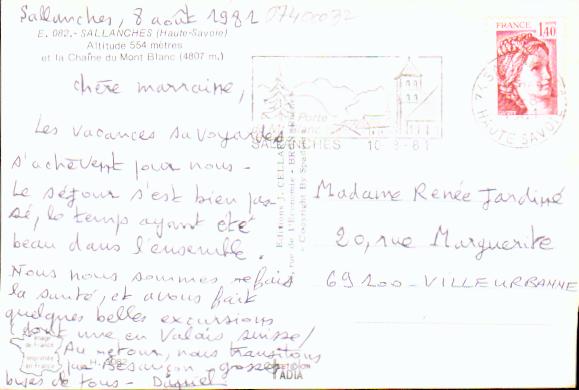 Sallanches, 8 août 1981 07400032
E. 082.- SALLANCHES (Haute-Savoie)
Altitude 554 mètres
et la Chaîne du Mont Blanc (4807 m.)
FRANCE
1,40
HAUTE SAVOIE
Porte
SALLANCHES 10-8-81
Chère marraine,
Les vacances savoyardes
s'achèvent pour nous.
Le séjour s'est bien pas-
sé, le temps ayant été
beau dans l'ensemble.
Nous nous sommes refait
la santé, et avons fait
quelques belles excursions
(dont une en Valais suisse)
Au retour, nous transitons
par Besançon. grosses
bises de tous -
Madame Renée Jardiné
20, rue Marguerite
69100 - VILLEURBANNE
Image
de France
imprimée
en France